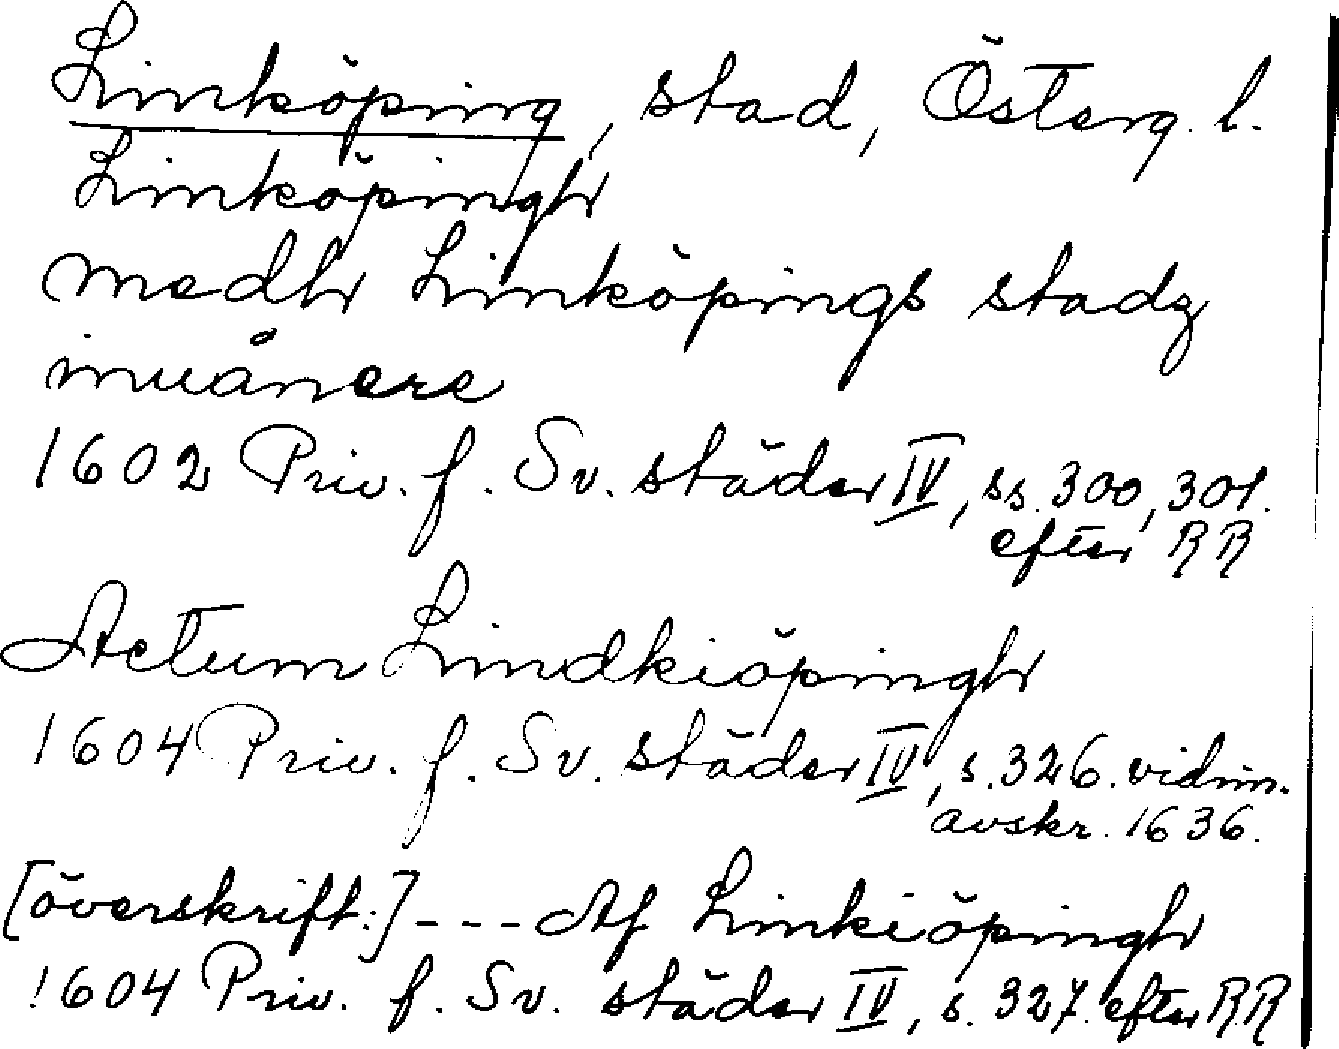 Linköping, stad, Österg. l.
Linköpingh
medh Linköpings stadz
inuånere
1602 Priv. f. Sv. städer IV, ss. 300, 301.
efter RR
Actum Lindkiöpingh
1604 Priv. f. Sv. städer IV, s. 326. vidim.
avskr. 1636.
[överskrift:] - - - Af Linkiöpingh
1604 Priv. f. Sv. städer IV, s. 327. efter RR